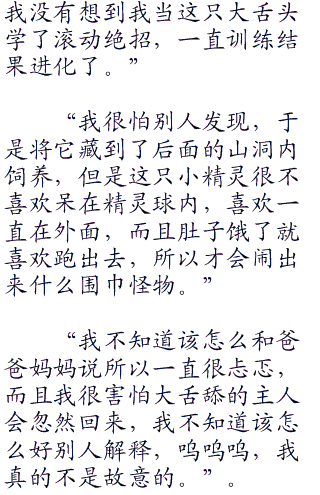 我没有想到我当这只大舌头
学了滚动绝招，一直训练结
果进化了。”
“我很怕别人发现，于
是将它藏到了后面的山洞内
饲养，但是这只小精灵很不
喜欢呆在精灵球内，喜欢一
直在外面，而且肚子饿了就
喜欢跑出去，所以才会闹出
来什么围巾怪物。”
“我不知道该怎么和爸
爸妈妈说所以一直很忐忑，
而且我很害怕大舌舔的主人
会忽然回来，我不知道该怎
么好别人解释，呜呜呜，我
真的不是故意的。”。